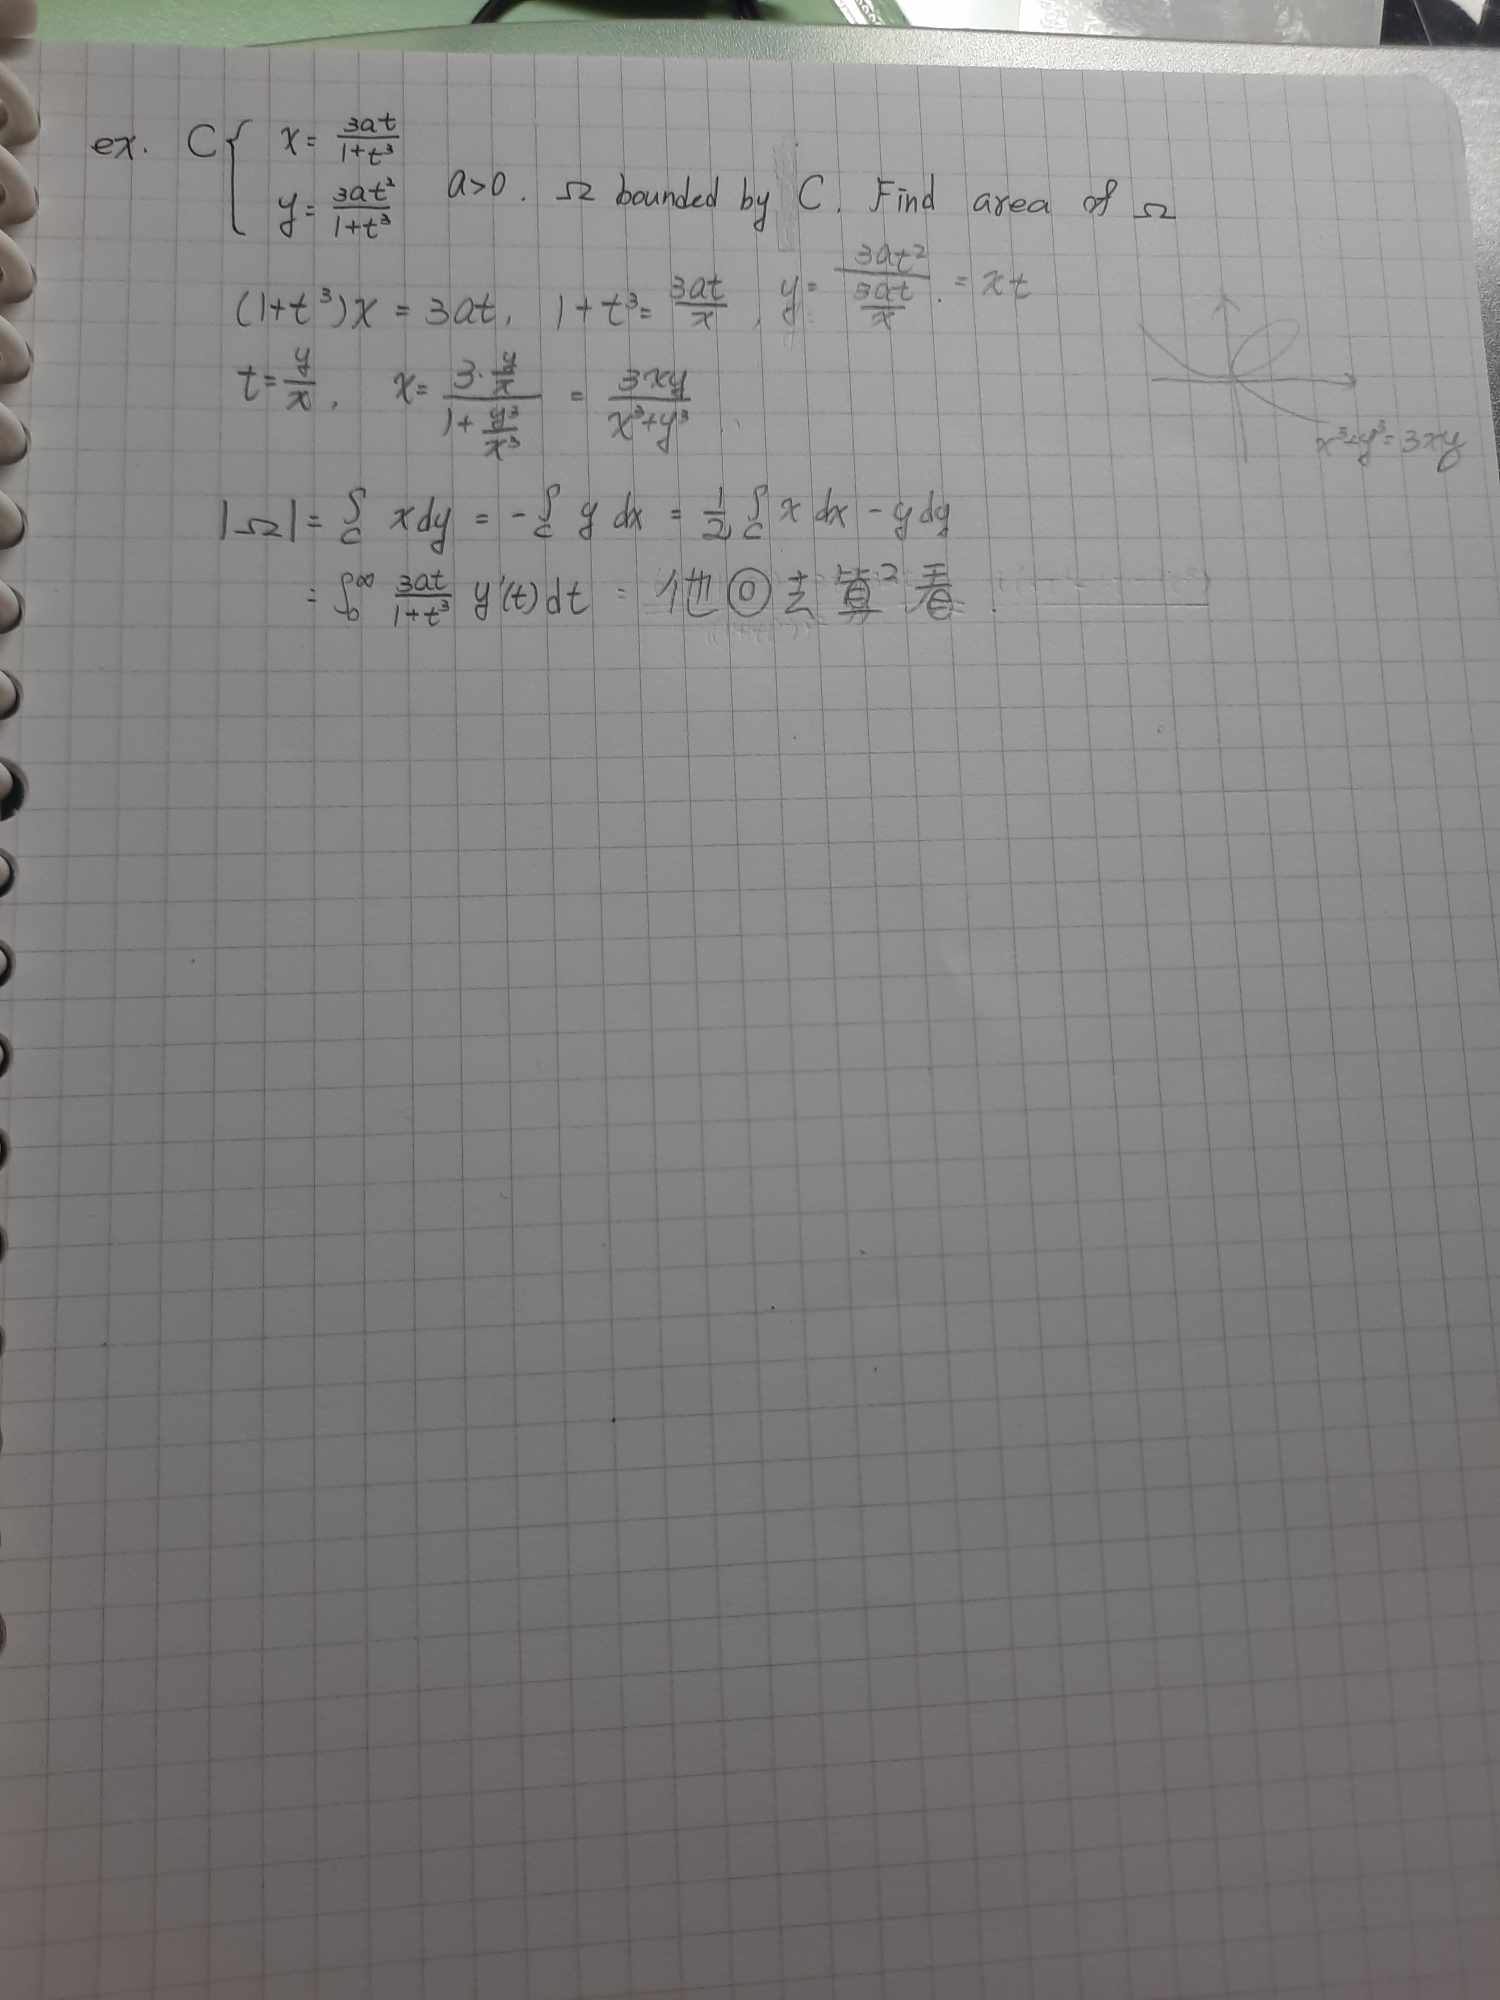 ex. C { x = 3at/(1+t³)
y = 3at²/(1+t³) a>0. Ω bounded by C. Find area of Ω
(1+t³)x = 3at, 1+t³ = 3at/x, y = 3at²/(3at/x) = xt
t = y/x, x = (3·y/x)/(1+y³/x³) = 3xy/(x³+y³)
x³+y³=3xy
|Ω| = ∫_C xdy = -∫_C y dx = 1/2 ∫_C x dx - y dy
= ∫_0^∞ 3at/(1+t³) y'(t)dt =